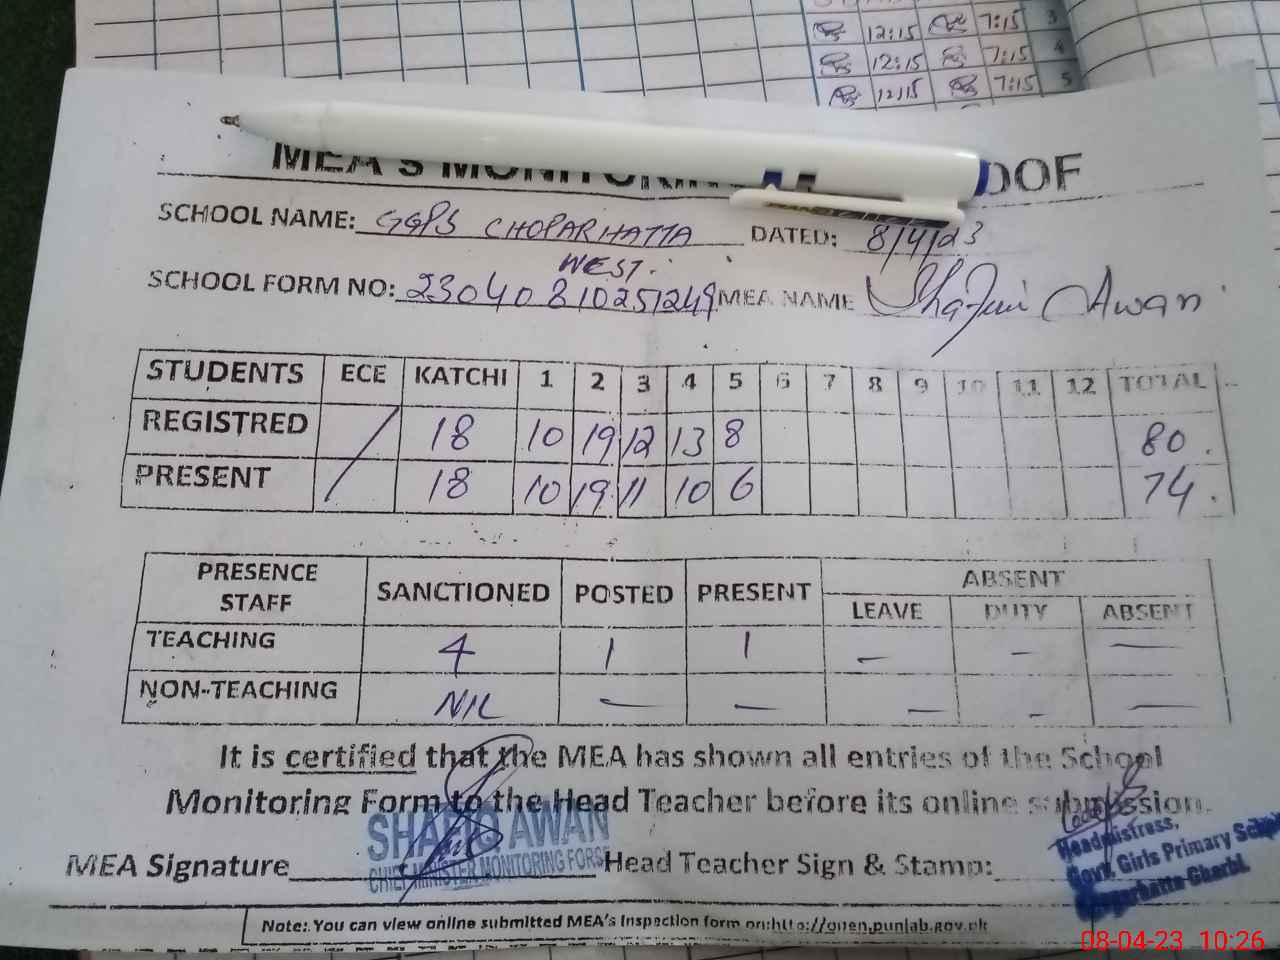 12:15 7:15 3
12:15 7:15 4
12:15 7:15 5
MEA'S MONITORING OOF
SCHOOL NAME: GGPS CHOPARHATTA DATED: 8/4/23
WEST.
SCHOOL FORM NO: 23040810251249 MEA NAME Awan
STUDENTS ECE KATCHI 1 2 3 4 5 6 7 8 9 10 11 12 TOTAL
REGISTRED / 18 10 19 12 13 8 80.
PRESENT 18 10 19 11 10 6 74.
PRESENCE STAFF SANCTIONED POSTED PRESENT ABSENT
LEAVE DUTY ABSENT
TEACHING 4 1 1 — — —
NON-TEACHING NIL — — — — —
It is certified that the MEA has shown all entries of the School
Monitoring Form to the Head Teacher before its online submission.
SHAFIQ AWAN
CHIEF MINISTER MONITORING FORSE
MEA Signature Head Teacher Sign & Stamp:
Headmistress,
Govt. Girls Primary School
Gharbi.
Note: You can view online submitted MEA's inspection form on:http://open.punjab.gov.pk
08-04-23 10:26